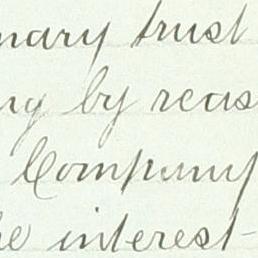 nary trust
ng by reas
Company
he interest-